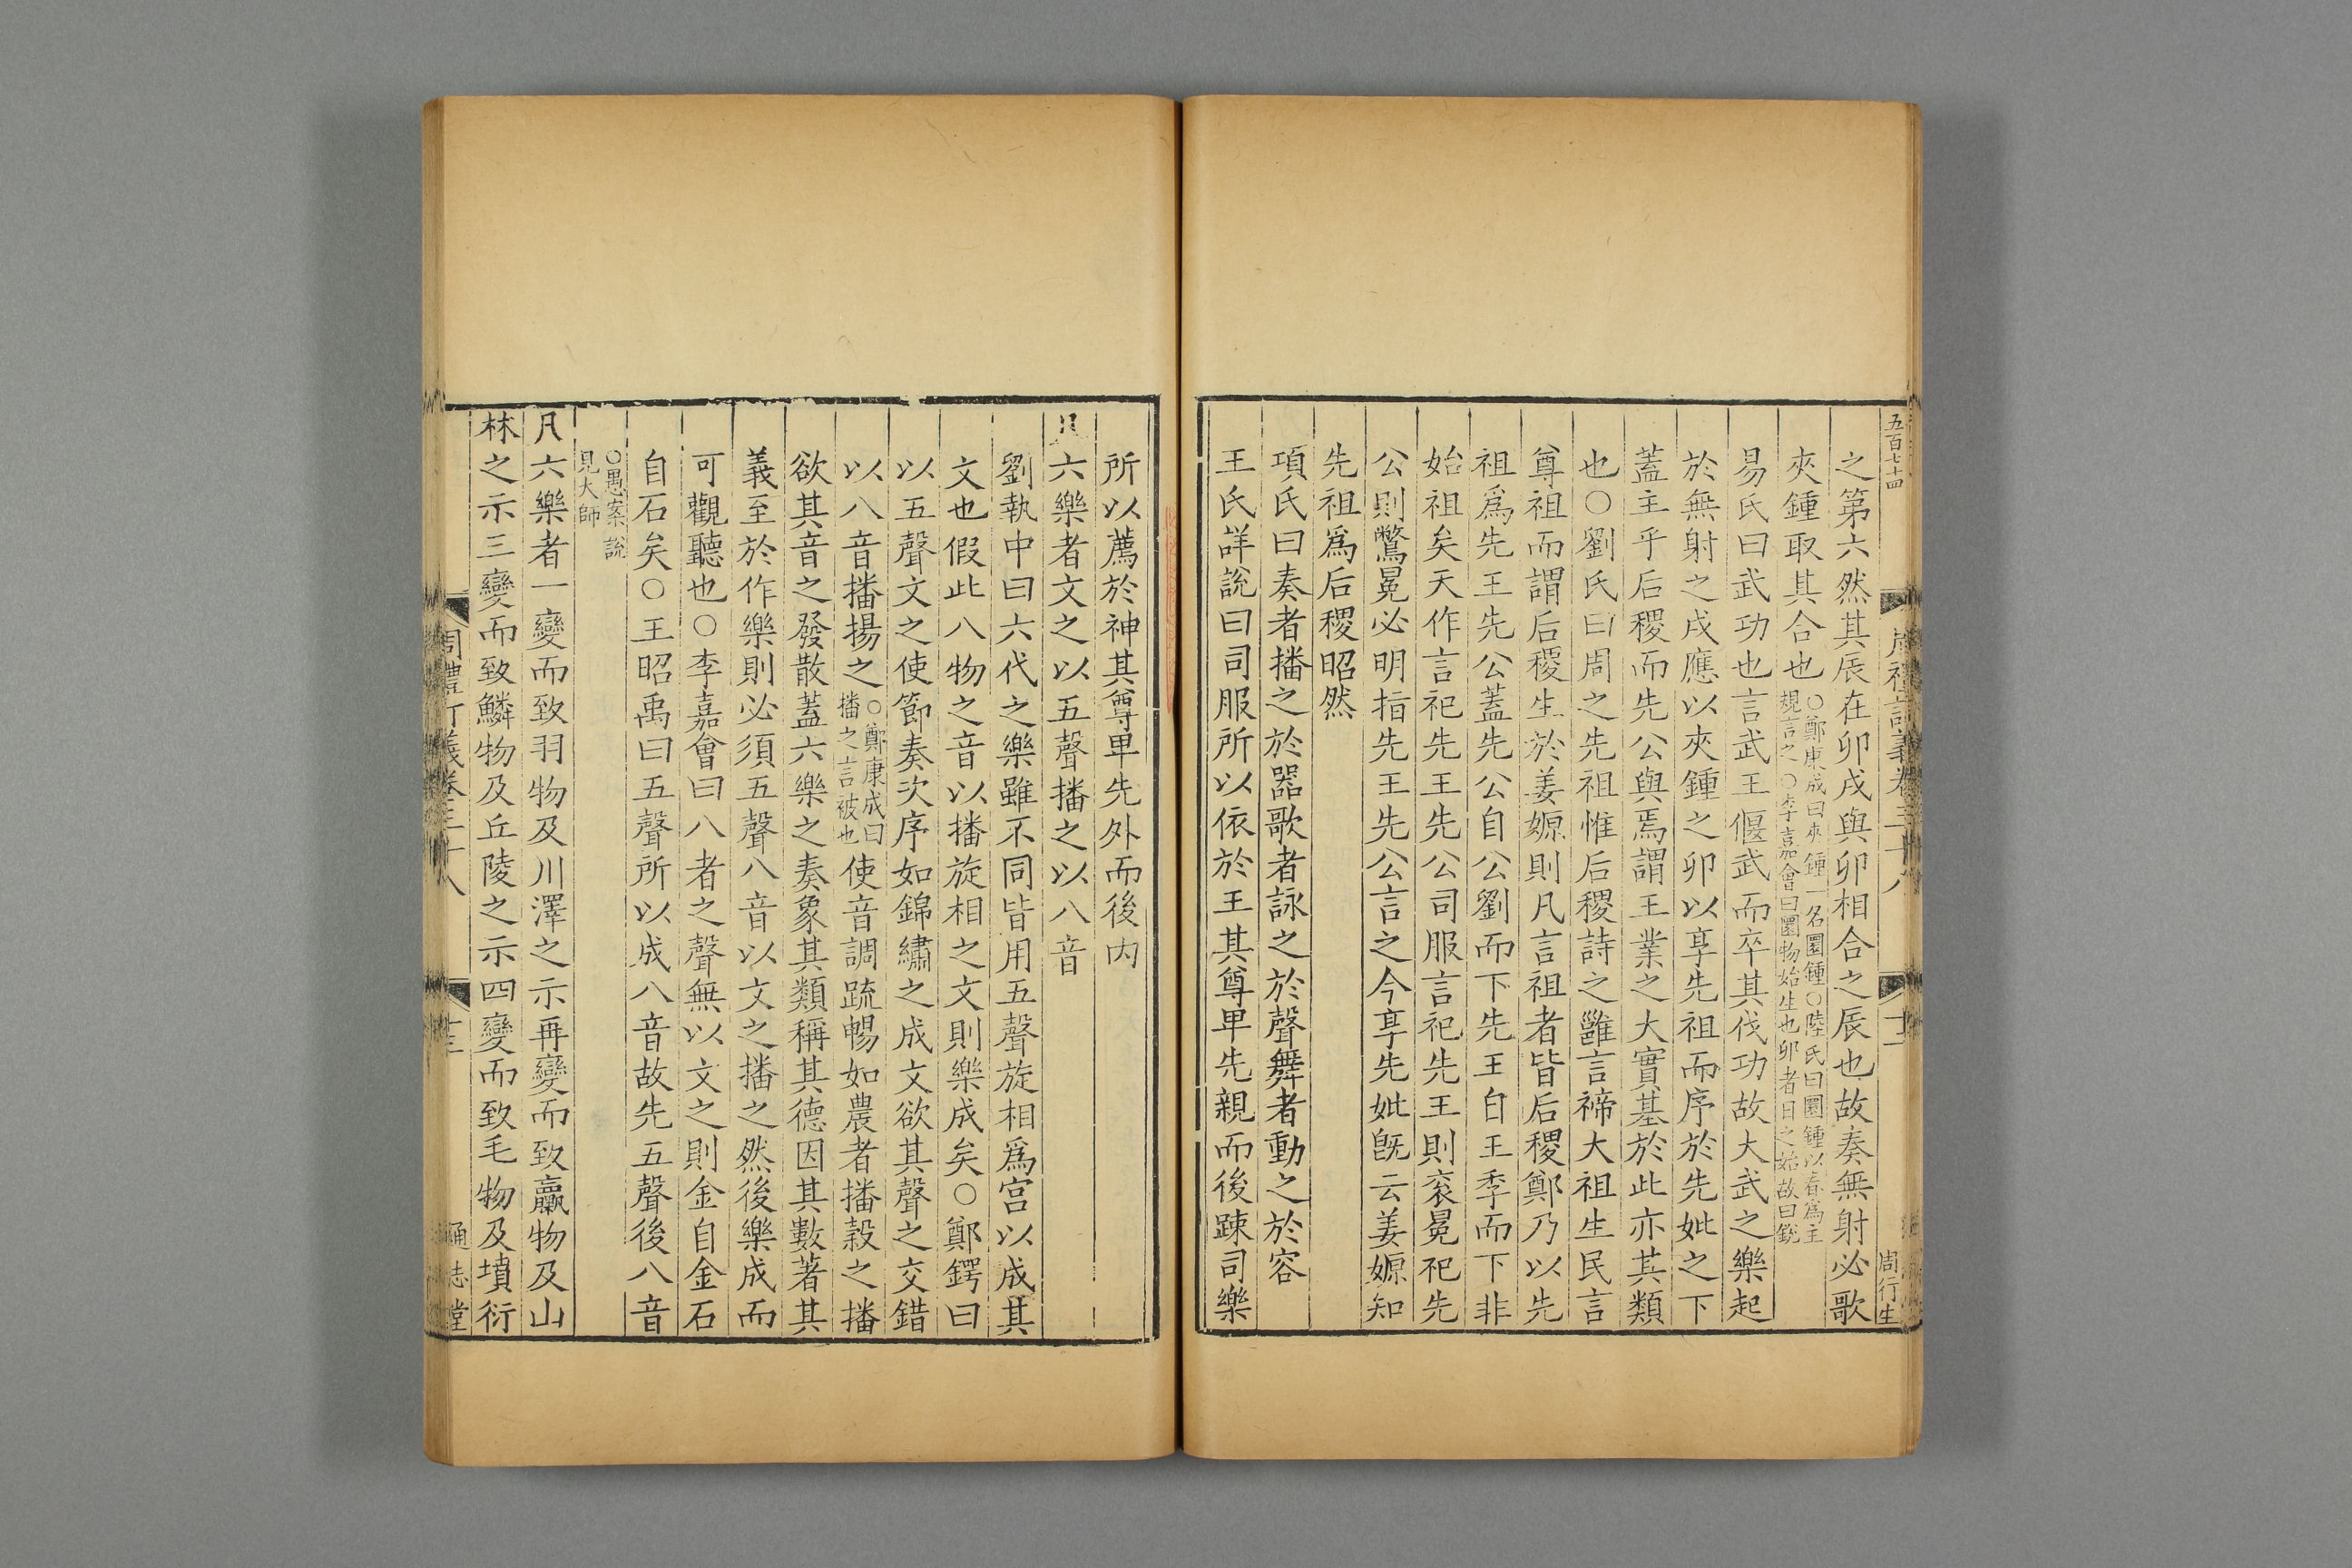 五百七十四
周禮訂義卷三十八
十二
周行生
之第六然其辰在卯戌與卯相合之辰也故奏無射必歌
夾鍾取其合也○鄭康成曰夾鍾一名圜鍾○陸氏曰圜鍾以春爲主
規言之○李嘉會曰圜物始生也卯者日之始故曰鋭
易氏曰武功也言武王偃武而卒其伐功故大武之樂起
於無射之戌應以夾鍾之卯以享先祖而序於先妣之下
蓋主乎后稷而先公與焉謂王業之大實基於此亦其類
也○劉氏曰周之先祖惟后稷詩之雝言禘大祖生民言
尊祖而謂后稷生於姜嫄則凡言祖者皆后稷鄭乃以先
祖爲先王先公蓋先公自公劉而下先王自王季而下非
始祖矣天作言祀先王先公司服言祀先王則衮冕祀先
公則鷩冕必明指先王先公言之今享先妣旣云姜嫄知
先祖爲后稷昭然
項氏曰奏者播之於器歌者詠之於聲舞者動之於容
王氏詳說曰司服所以依於王其尊卑先親而後踈司樂
所以薦於神其尊卑先外而後内
凡六樂者文之以五聲播之以八音
劉執中曰六代之樂雖不同皆用五聲旋相爲宫以成其
文也假此八物之音以播旋相之文則樂成矣○鄭鍔曰
以五聲文之使節奏次序如錦繡之成文欲其聲之交錯
以八音播揚之○鄭康成曰播之言被也使音調踈暢如農者播穀之播
欲其音之發散蓋六樂之奏象其類稱其德因其數著其
義至於作樂則必須五聲八音以文之播之然後樂成而
可觀聽也○李嘉會曰八者之聲無以文之則金自金石
自石矣○王昭禹曰五聲所以成八音故先五聲後八音
○愚案說
見大師
凡六樂者一變而致羽物及川澤之示再變而致臝物及山
林之示三變而致鱗物及丘陵之示四變而致毛物及墳衍
周禮訂義卷三十八
十三
通志堂